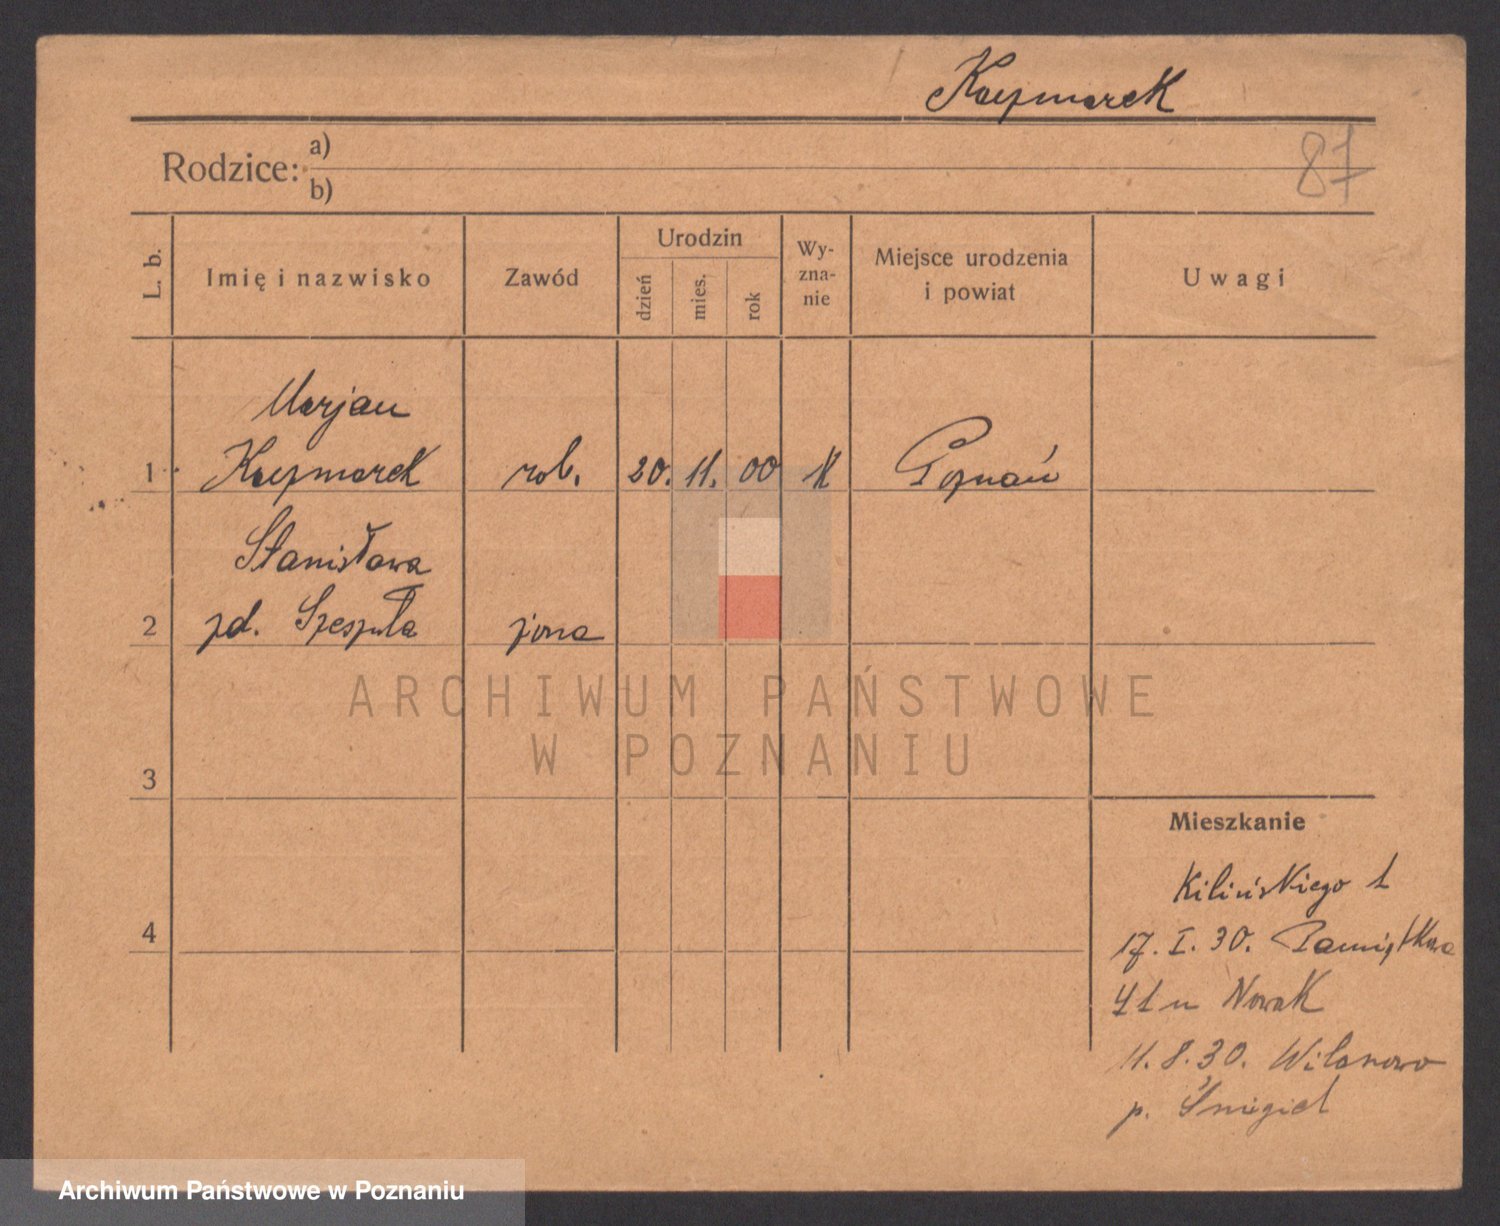 Kaczmarek
Rodzice: a)
b)
87
L. b.
Imię i nazwisko
Zawód
Urodzin
dzień
mies.
rok
Wy-
zna-
nie
Miejsce urodzenia
i powiat
Uwagi
Marjan
1 Kaczmarek rob. 20. 11. 00 K Poznań
Stanisława
2 zd. Szeszuła żona
ARCHIWUM PAŃSTWOWE
W POZNANIU
3
4
Mieszkanie
Kilińskiego 1
17. I. 30. Pamiątkowa
u Nowak
11. 8. 30. Wilanowo
p. Śmigiel
Archiwum Państwowe w Poznaniu